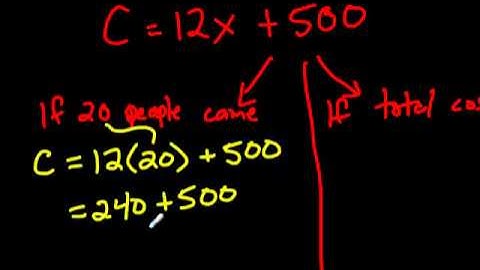 C = 12x + 500
If 20 people came
If total
C = 12(20) + 500
= 240 + 500